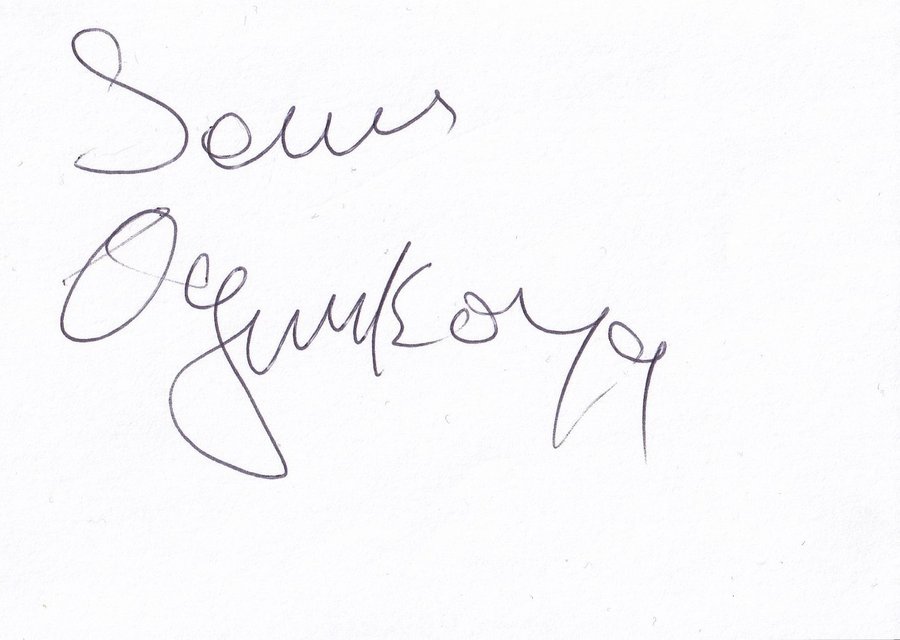 Seun
Ogunkoya